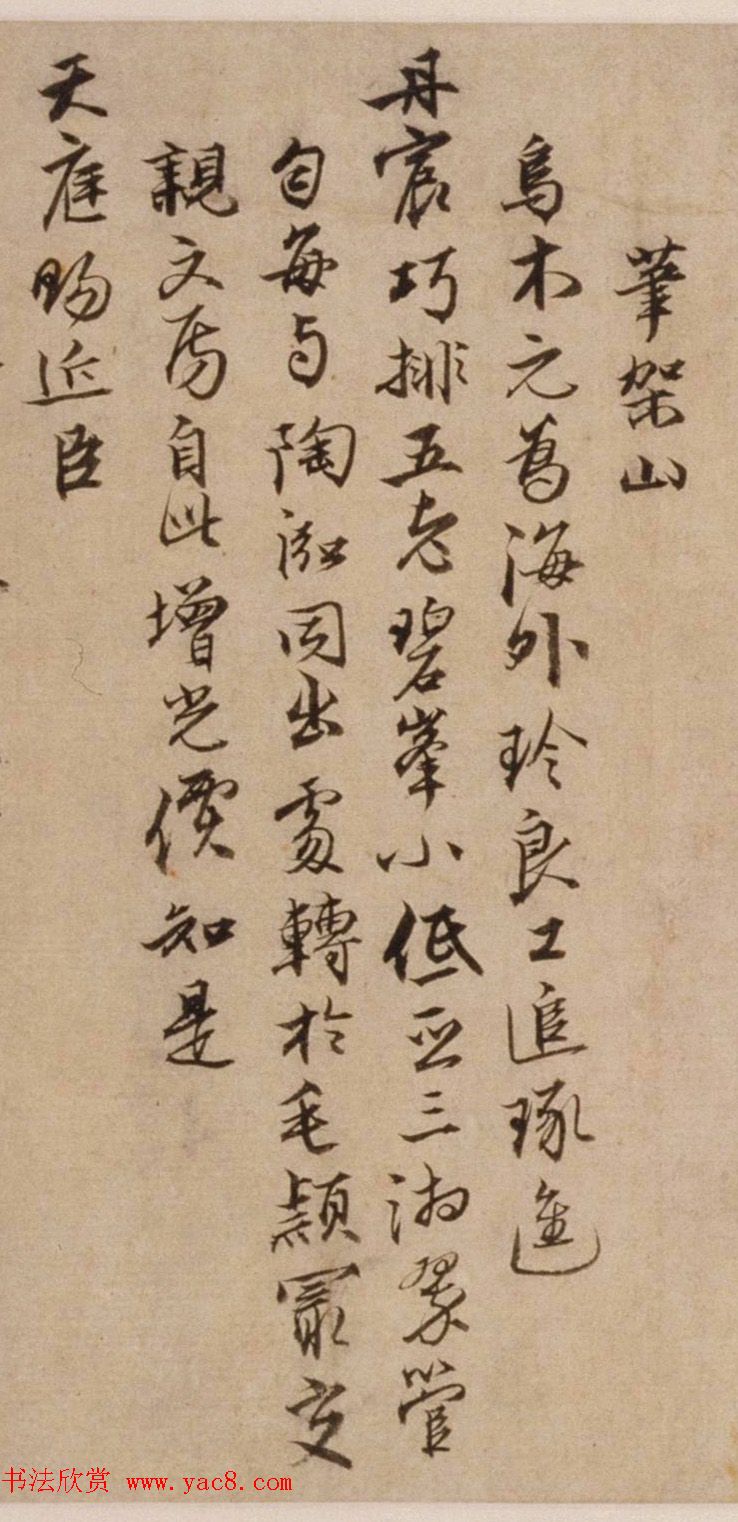 筆架山
烏木元爲海外珍良工追琢進
丹宸巧排五老碧峯小低亞三湘翠管
勻每與陶泓同出處轉於毛穎冣交
親文房自此增光價知是
天庭賜近臣
书法欣赏 www.yac8.com